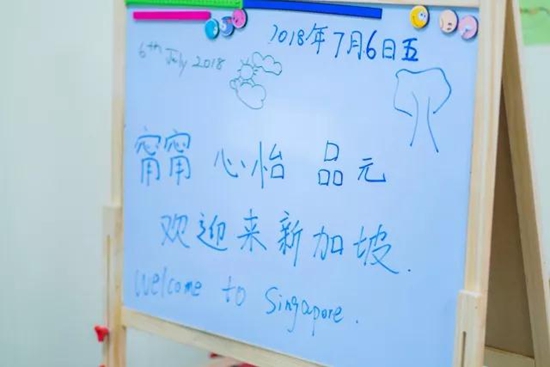 2018年7月6日五
6th July 2018
甯甯 心怡 品元
欢迎来新加坡.
Welcome to Singapore.